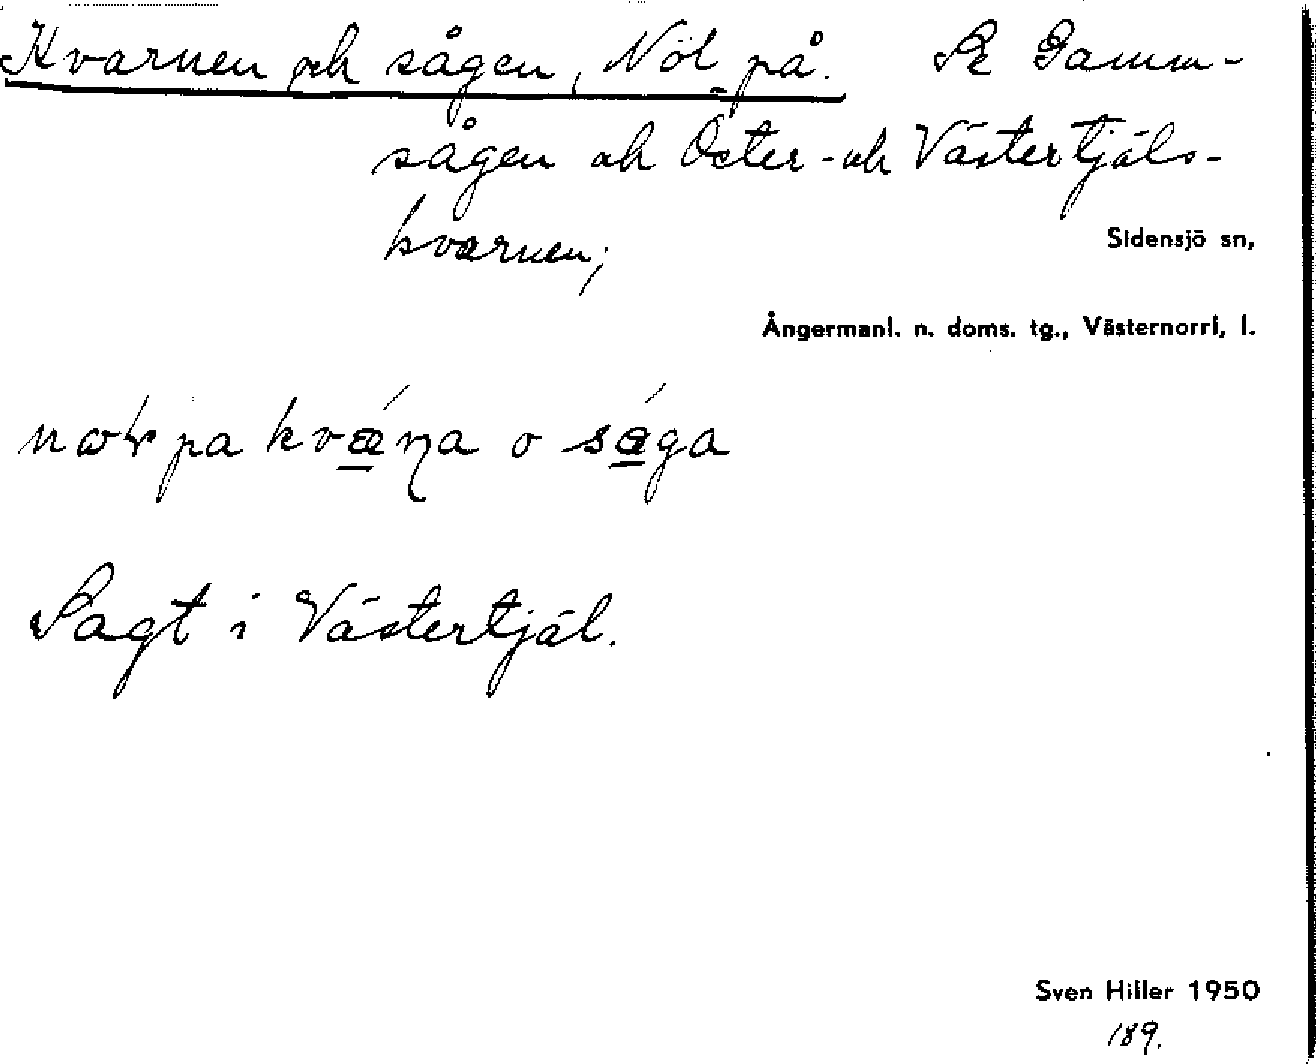 Kvarnen och sågen, Nöl på. Se Gamm-
sågen och Öster- och Västertjäls-
kvarnen;
Sidensjö sn,
Ångermanl. n. doms. tg., Västernorrl, l.
pa o
Sagt i Västertjäl.
Sven Hiller 1950
189.